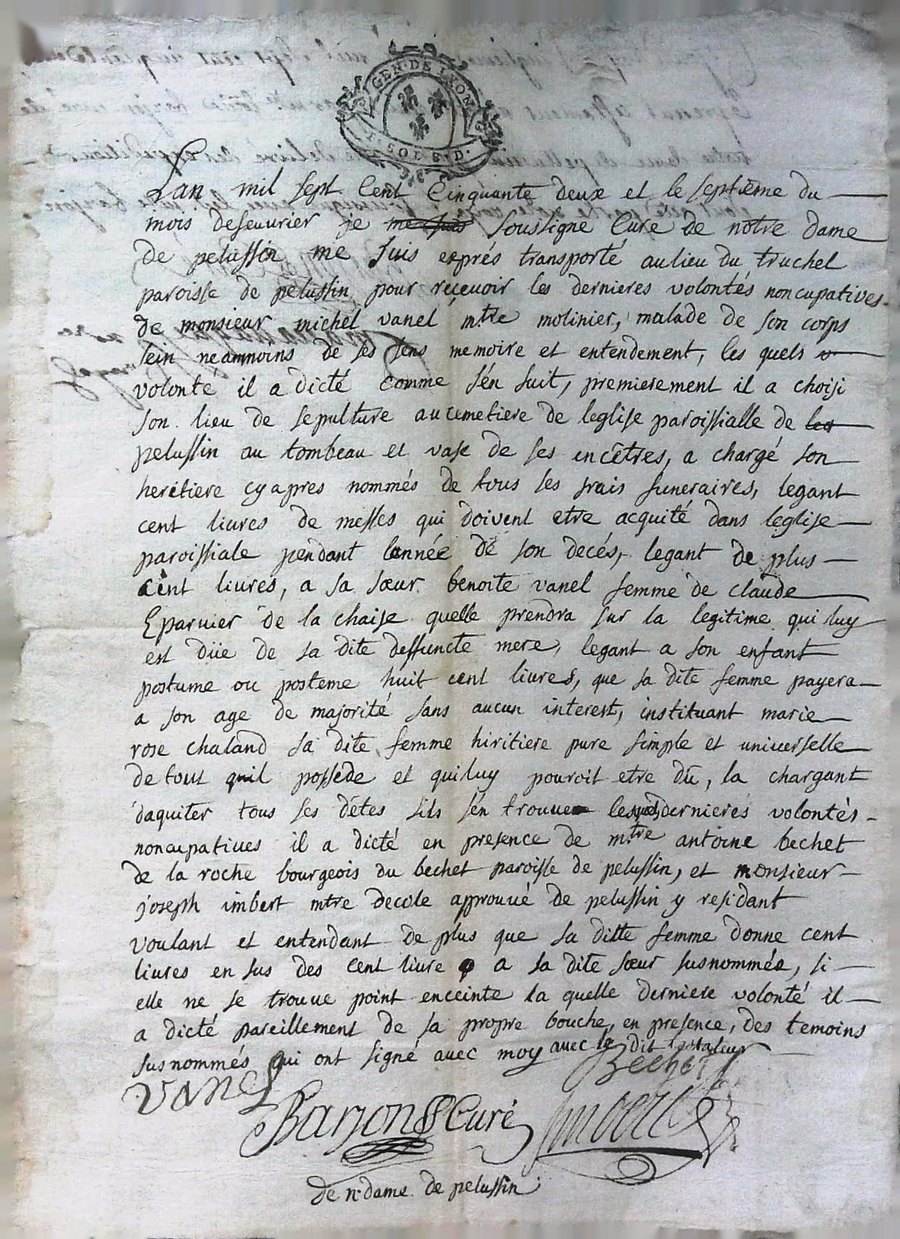 GEN. DE LYON
1. SOL 8. D.
Lan mil sept Cent Cinquante deux et le septième du
mois defeuurier je soussigne Curé de notre dame
de pelussin me suis exprés transporté au lieu du truchel
paroisse de pelussin pour receuoir les dernieres volontés noncupatives
de monsieur michel vanel mtre molinier, malade de son corps
sein neammoins de ses sens memoire et entendement, les quels
volonte il a dicté comme s'én suit, premierement il a choisi
son lieu de sepulture au cimetiere de leglise paroissialle de
pelussin au tombeau et vase de ses encêtres, a chargé son
heretiere cy apres nommés de tous ses frais funeraires, legant
cent liures de messes qui doivent etre acquité dans leglise
paroissiale pendant lannée de son decés, legant de plus
cent liures, a sa sœur benoite vanel femme de claude
Eparuier de la chaise quelle prendra sur la legitime qui luy
est düe de sa dite deffuncte mere, legant a son enfant
postume ou posteme huit cent liures, que sa dite femme payera
a son age de majorité sans aucun interest, instituant marie
rose chaland sa dite femme hiritiere pure simple et universelle
de tout quil possede et qui luy pouroit etre dû, la chargant
daquiter tous ses dêtes sils sén trouue lesquels dernieres volontés
noncupatives il a dicté en presence de mtre antoine bechet
de la roche bourgeois du bechet paroisse de pelussin, et monsieur
joseph imbert mtre decole approuué de pelussin y residant
voulant et entendant de plus que sa ditte femme donne cent
liures en sus des cent liure a sa dite sœur susnommée, si
elle ne se trouue point enceinte la quelle derniere volonté il
a dicté pareillement de sa propre bouche, en presence, des temoins
susnommés qui ont signé avec moy avec le dit testateur
Bechet
Vanel
Barjon Curé imbert
de n. dame de pelussin